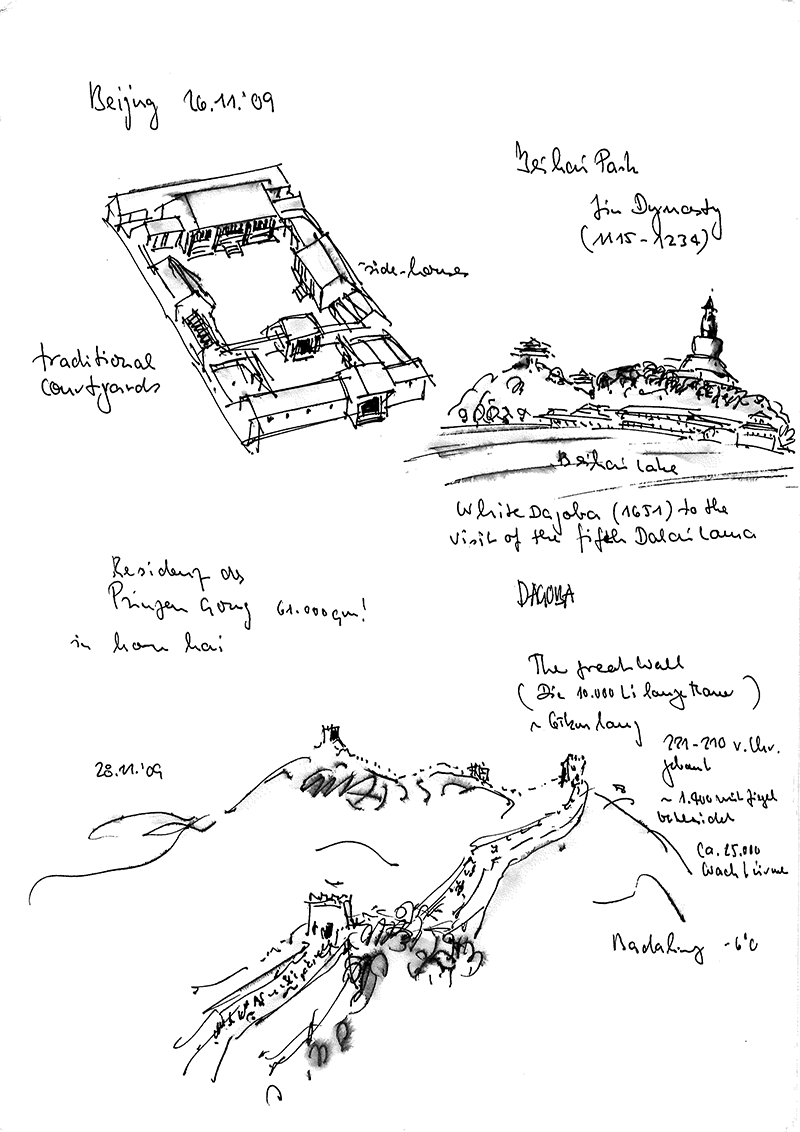 Beijing 26.11.'09
Beihai Park
Jin Dynasty
(1115-1234)
side-houses
traditional
courtyards
Beihai Lake
White Dagoba (1651) to the
visit of the fifth Dalai Lama
DAGOBA
Residenz des
Prinzen Gong 61.000 qm!
in hai
The great Wall
(Die 10.000 Li lange Mauer)
lang
221-210 v. Chr.
gebaut
28.11.'09
~ 1.400 mit Ziegel
verkleidet
Ca. 25.000
Wachtürme
Badaling -6°C